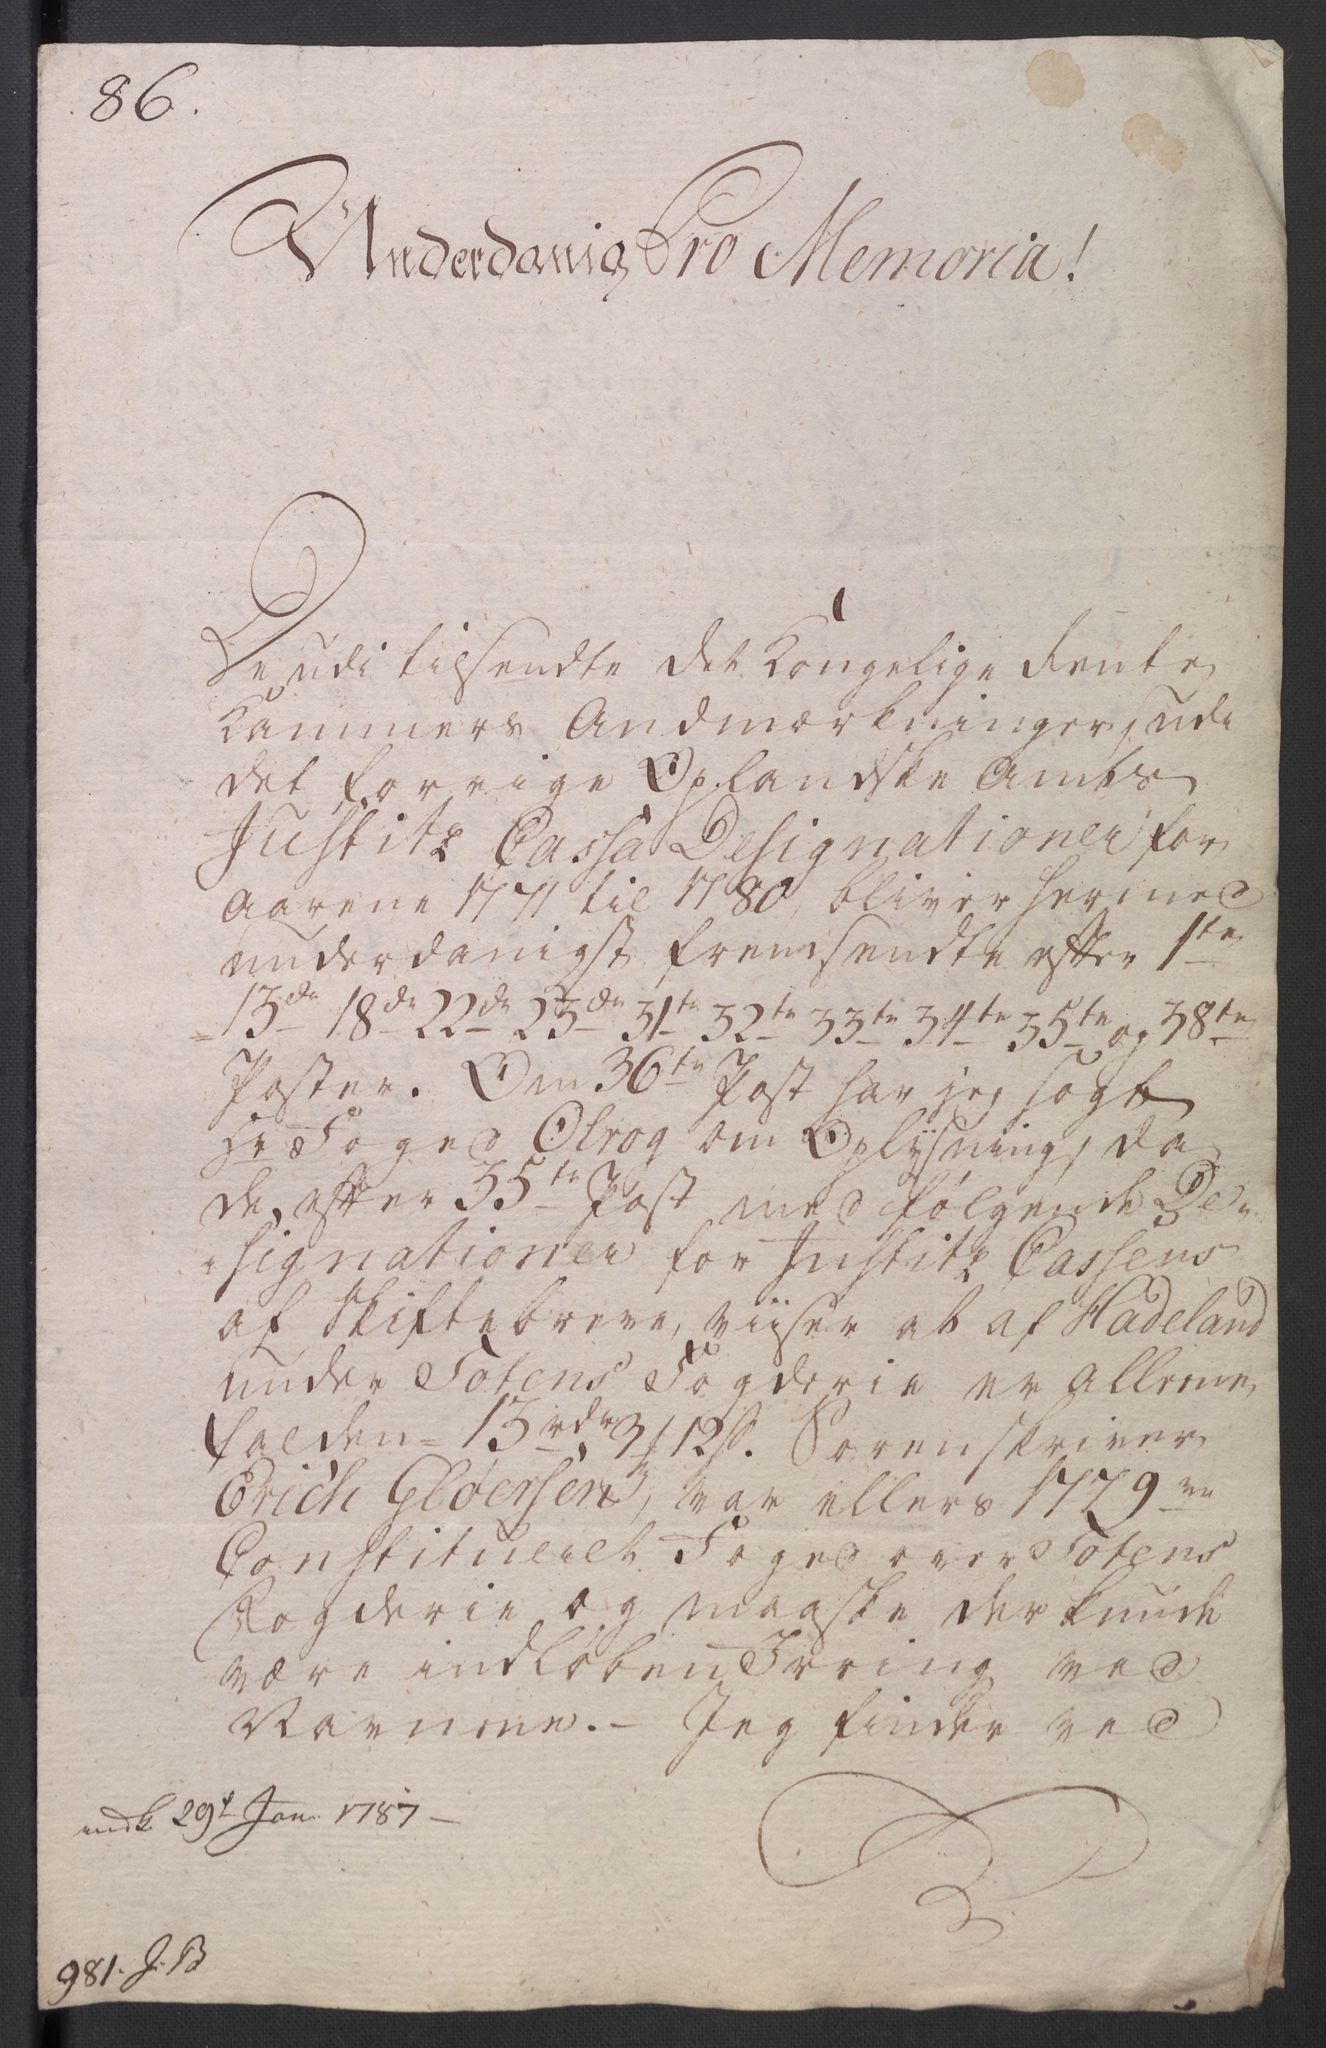 86.
Underdanig Pro Memoria!
De udi tilsendte det Kongelige Rente
Kammers Andmærkninger, udi
det forrige Oplandske Amts
Justitz Cassa Designationer for
Aarene 1771 til 1780, bliver hermed
underdanigst fremsendte efter 1te
13de 18de 22de 23de 31te 32te 33te 34te 35te og 38te
Poster. Om 36te Post har jeg søgt
Hr Foged Olrog om Oplysning, da
de, efter 35te Post med følgende De=
=signationer for Justitz Cassens
af Skiftebreve, viiser at af Hadeland
under Totens Fogderie er alleene
falden 13 rdr 3 12 s. Sorenskriver
Erich Gløersen, var ellers 1779 
Constitueret Foged over Totens
Fogderie og maaske der kunde
være indløben Irring ved
Navnene. – Jeg finder ved
indk 29t Jan 1787 –
981. J. B